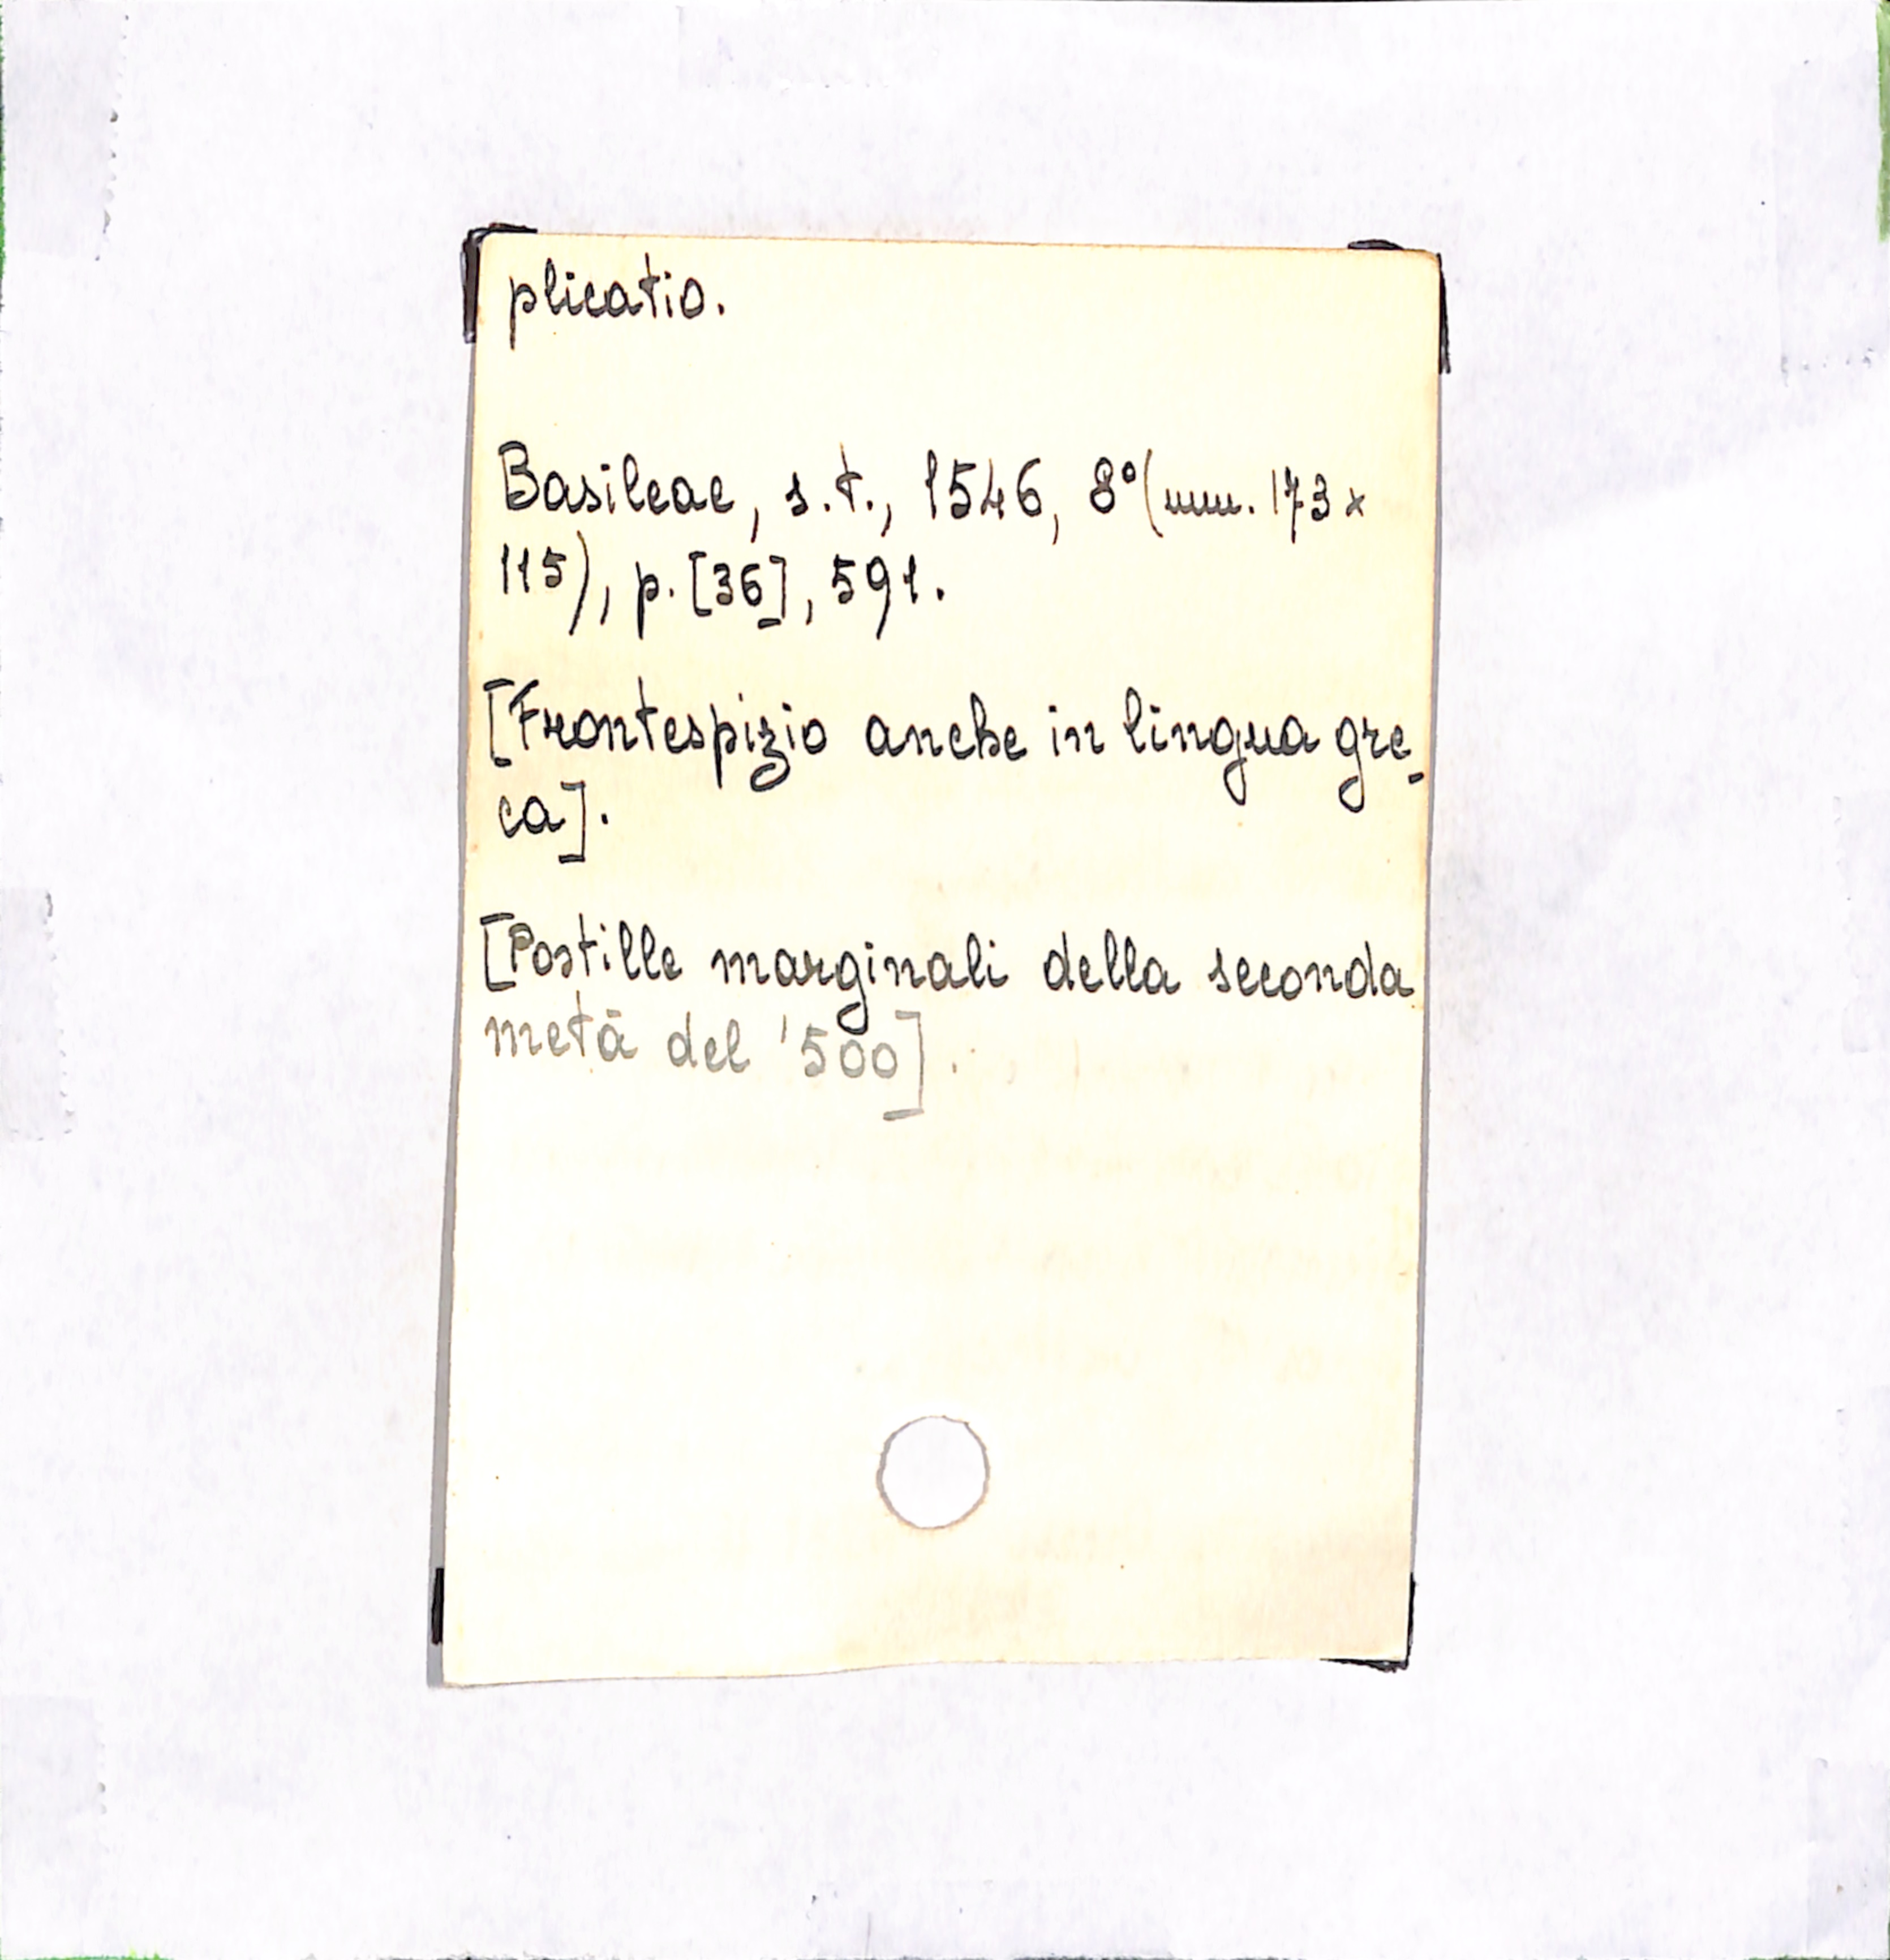 plicatio.
Basileae, s.t., 1546, 8° (mm. 173 x
115), p. [36], 591.
[Frontespizio anche in lingua gre-
ca].
[Postille marginali della seconda
metà del '500].